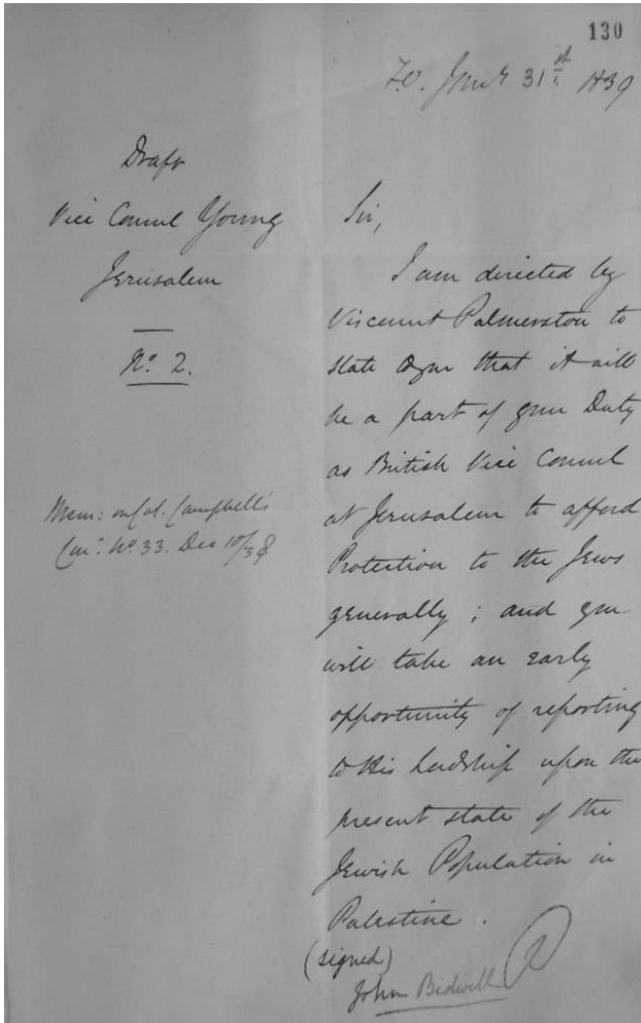 130
F.O. Jan.y 31st 1839
Draft
Vice Consul Young
Jerusalem
No. 2.
Mem: on Col. Campbell's
No. 33. Dec 10/38
Sir,
I am directed by
Viscount Palmerston to
state to you that it will
be a part of your Duty
as British Vice Consul
at Jerusalem to afford
Protection to the Jews
generally; and you
will take an early
opportunity of reporting
to His Lordship upon the
present state of the
Jewish Population in
Palestine.
(signed)
John Bidwell